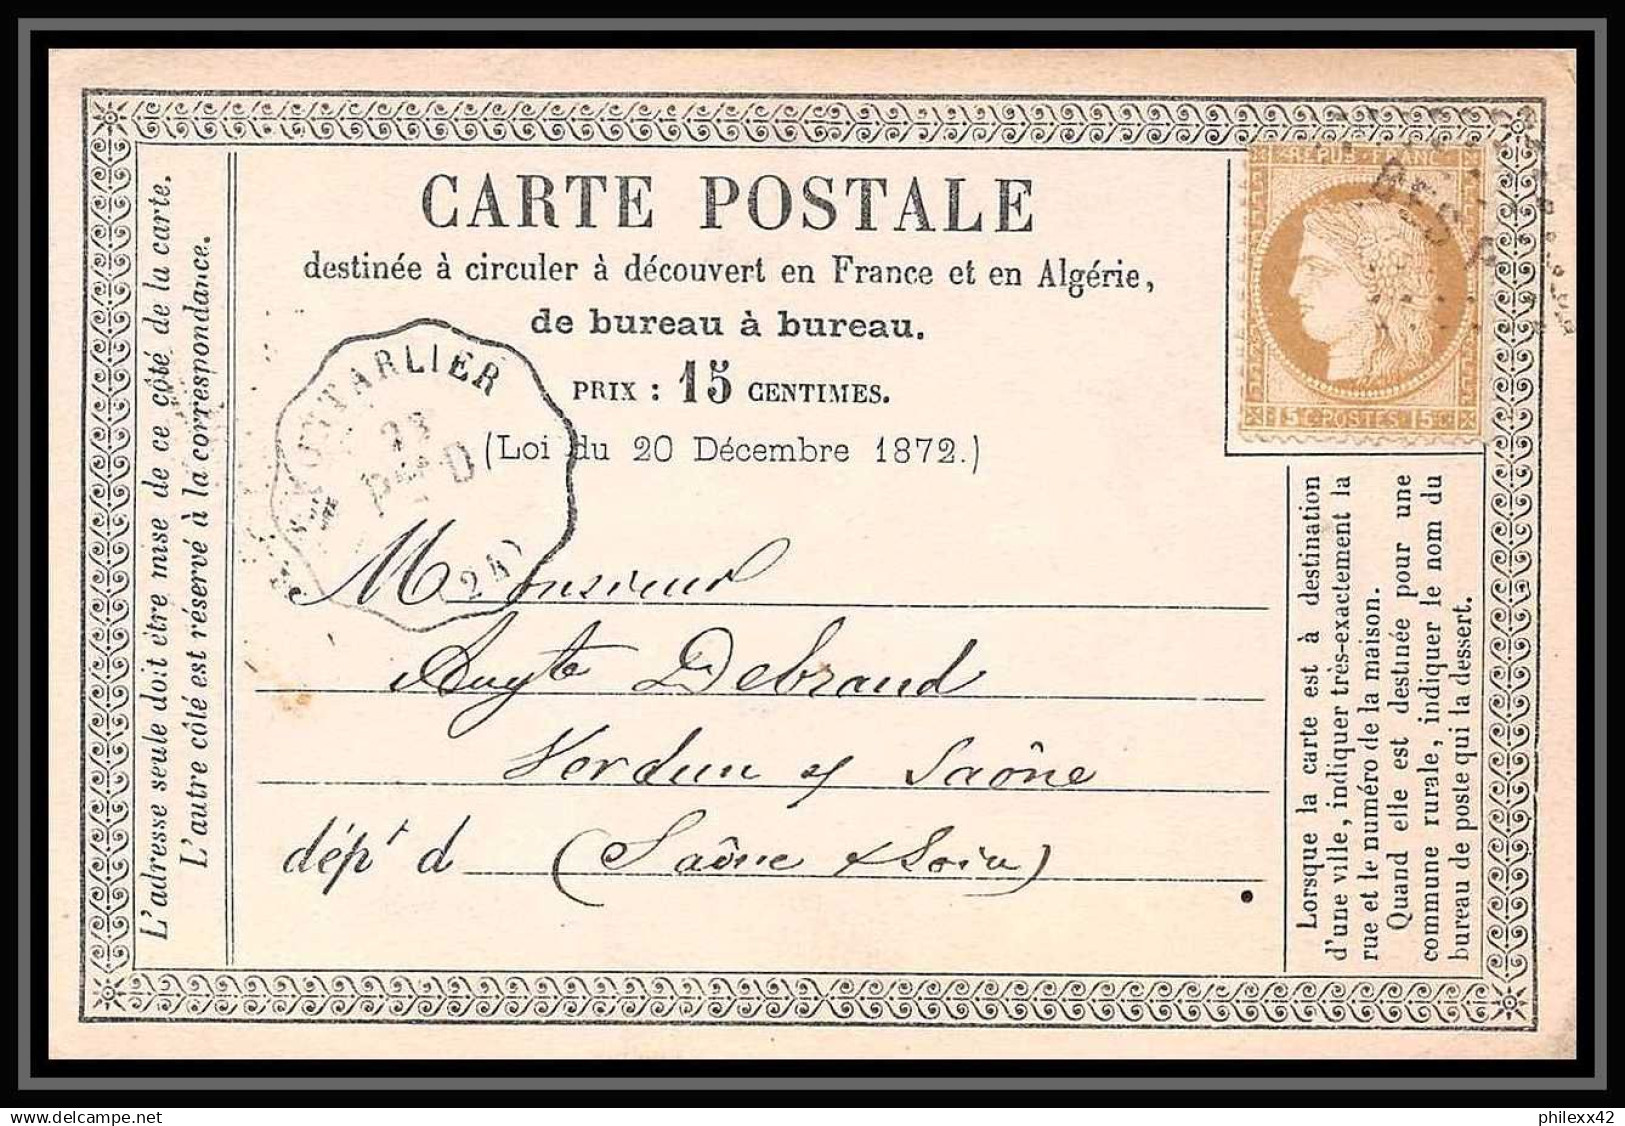 L'adresse seule doit être mise de ce côté de la carte.
L'autre côté est réservé à la correspondance.
CARTE POSTALE
destinée à circuler à découvert en France et en Algérie,
de bureau à bureau.
PRIX : 15 CENTIMES.
(Loi du 20 Décembre 1872.)
REPUB · FRANC
15 C · POSTES · 15 C
PONTARLIER
23
24)
Monsieur
Augte Debrand
Verdun s/ Saône
dépt d (Saône & Loire)
Lorsque la carte est à destination
d'une ville, indiquer très-exactement la
rue et le numéro de la maison.
Quand elle est destinée pour une
commune rurale, indiquer le nom du
bureau de poste qui la dessert.
www.delcampe.net
philexx42